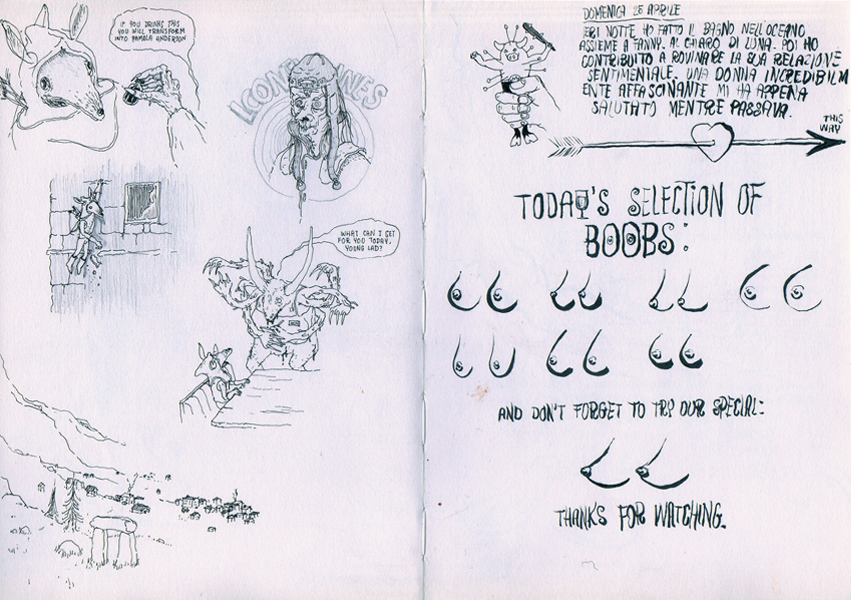 IF YOU DRINKS THIS
YOU WILL TRANSFORM
INTO PAMALA ANDERSON
WHAT CAN I GET
FOR YOU TODAY,
YOUNG LAD?
DOMENICA 28 APRILE
IERI NOTTE HO FATTO IL BAGNO NELL'OCEANO
ASSIEME A FANNY. AL CHIARO DI LUNA. POI HO
CONTRIBUITO A ROVINARE LA SUA RELAZIONE
SENTIMENTALE. UNA DONNA INCREDIBILM
ENTE AFFASCINANTE MI HA APPENA
SALUTATO MENTRE PASSAVA.
THIS
WAY
TODAY'S SELECTION OF
BOOBS:
AND DON'T FORGET TO TRY OUR SPECIAL:
THANKS FOR WATCHING.